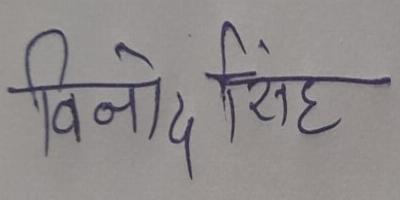 विनोद सिंह